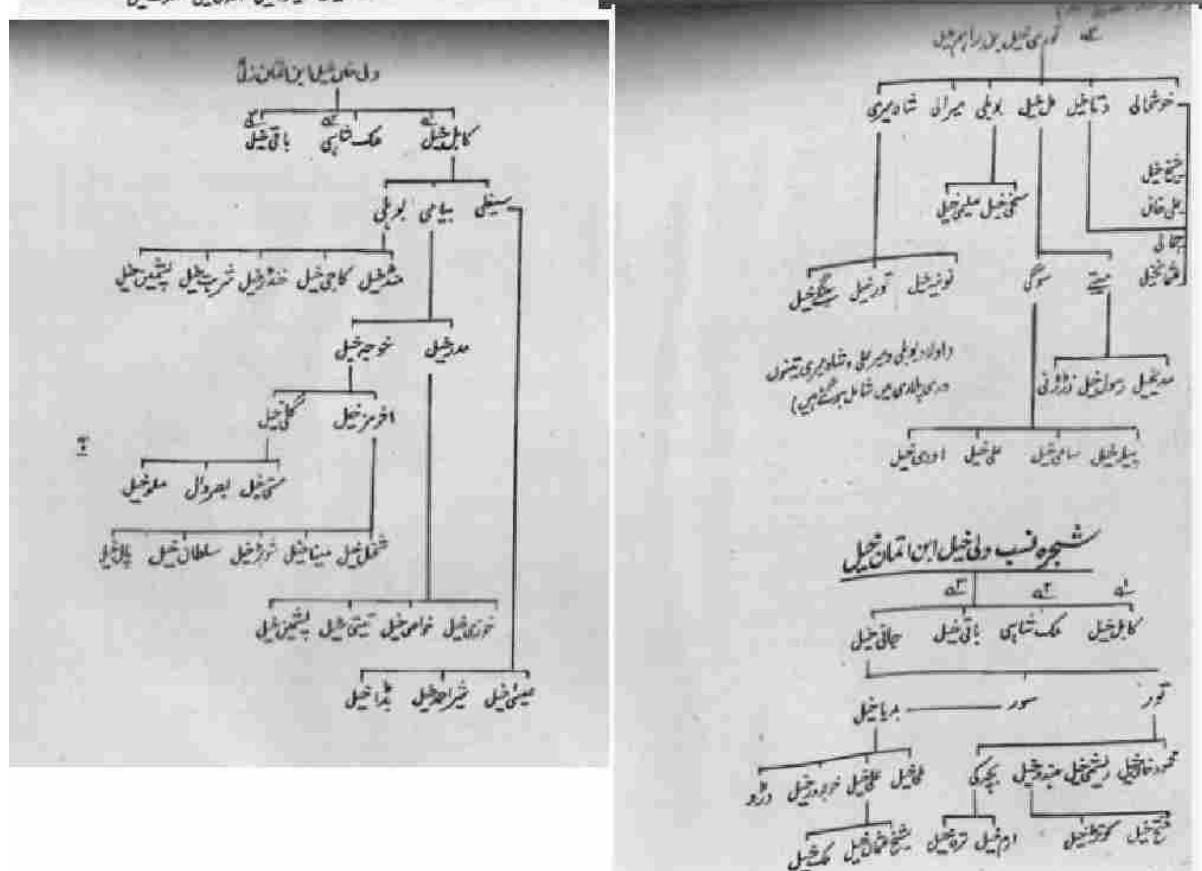 ولی خان خیل ابن اتمان زئی
۱ ۲ ۳
کابل خیل ملک شاہی باقی خیل
سیفلی پیپامی بوبلی
کابی خیل خنڈر خیل شرب خیل پشمین خیل
مدد خیل خوجیر خیل
اخرمز خیل گلی خیل
مستی خیل بصروال ملو خیل
شمل خیل مینا خیل سلطان خیل پال خیل
خوزی خیل خواصی خیل تمتی خیل پشمین خیل
میشی خیل شیر احمد خیل بڈا خیل
توری خیل بن ابراہیم خیل
خوشحالی دتا خیل مل خیل بوبلی میرالی شاہ میری
شیخ خیل
علی خان
جمالی
عثمان خیل
سخی خیل علیمی خیل
موسکی
تور خیل سنگی خیل
(اولاد بوبلی و میرعلی و شاہ میری تینوں
دری پلاری میں شامل ہو گئے ہیں)
مدی خیل رسول خیل زڑونی
پیپلر خیل سامی خیل علی خیل اودی خیل
شجرہ نسب ولی خیل ابن اتمان خیل
۱ ۲ ۳
کابل خیل ملک شاہی باقی خیل جانی خیل
تور سور بریا خیل
محمود خان خیل ریشمی خیل ہندو خیل بچکی
علی خیل علی خیل خوبرور خیل دڑو
فتح خیل کوترخیل
ارم خیل ترہ خیل
شیخ عثمان خیل مک خیل